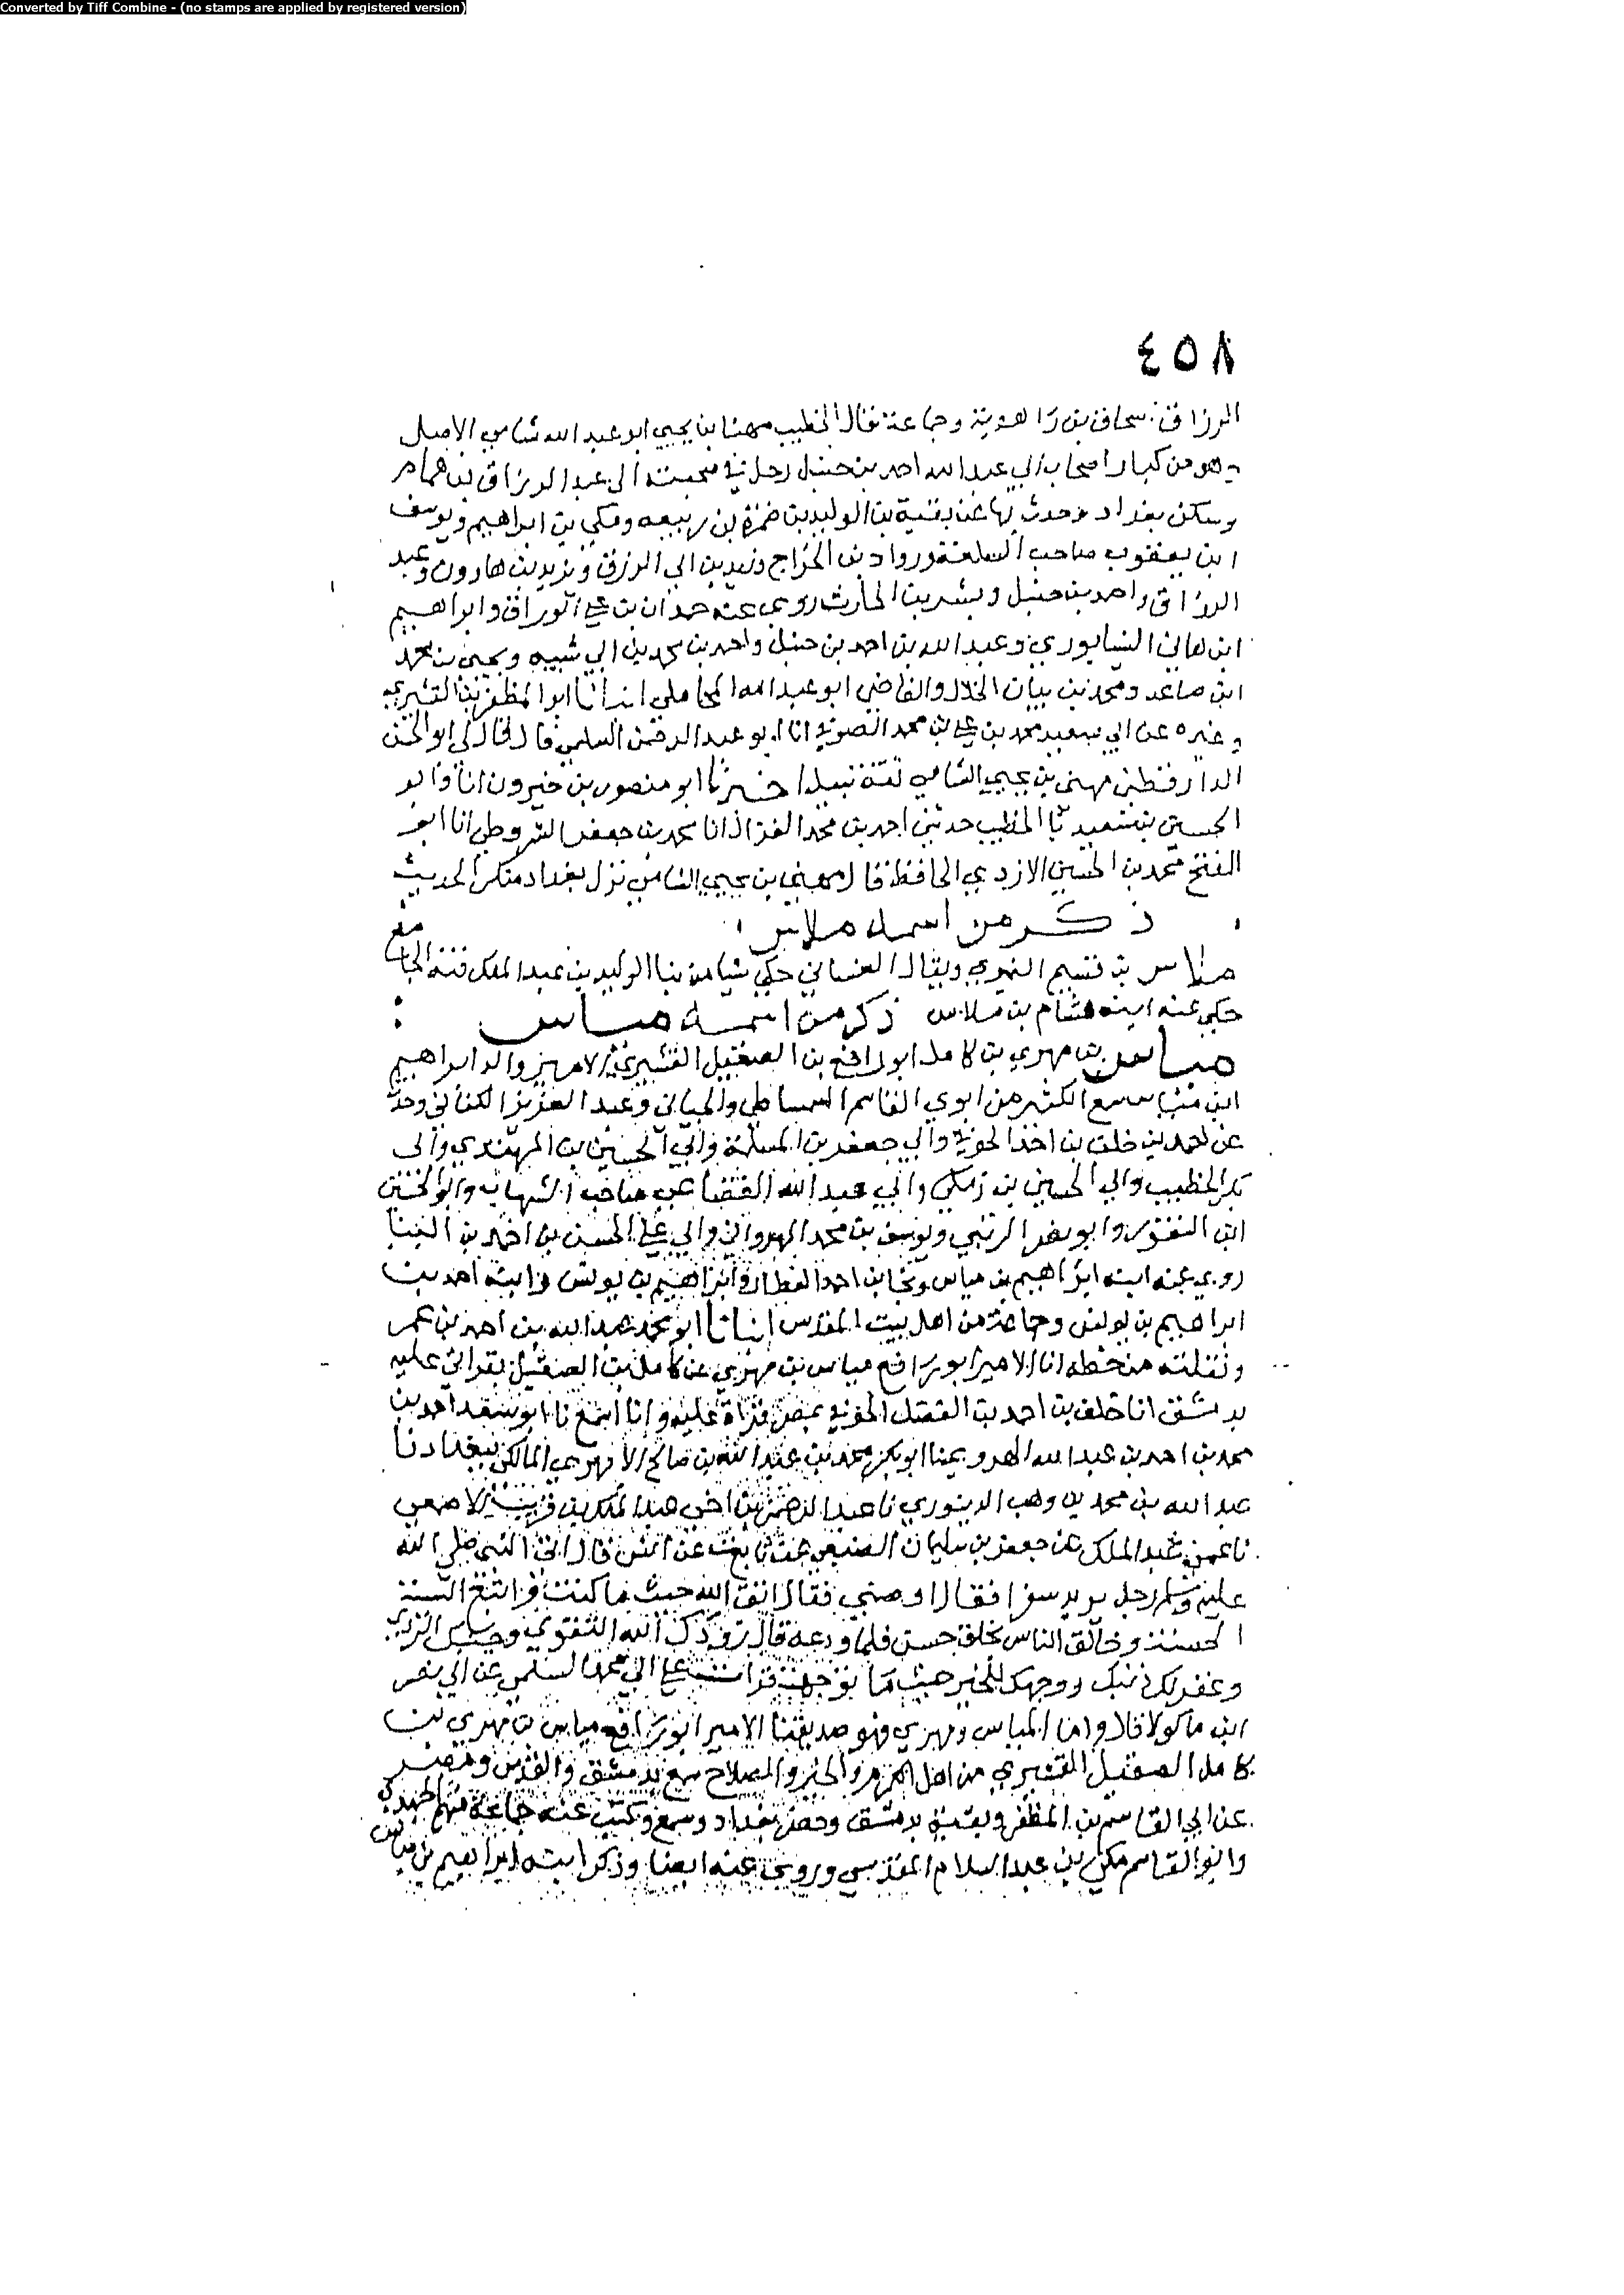 Converted by Tiff Combine - (no stamps are applied by registered version)
٤٥٨
الرزاق اسحاق بن راهوية وجماعة قال الخطيب مهنا بن يحيى ابو عبد الله شامي الاصل
وهو من كبار اصحاب ابي عبد الله احمد بن حنبل رحل في صحبته الى عبد الرزاق بن همام
وسكن بغداد وحدث بها عن بقية بن الوليد بن ضمرة بن ربيعه ومكي بن ابراهيم ويوسف
ابن يعقوب صاحب السلعة ورواد بن الجراج وزيد بن ابي الزرق ويزيد بن هارون وعبد
الرزاق واحمد بن حنبل وبشر بن الحارث روى عنه حمدان بن علي الوراق وابراهيم
ابن هاني النيسابوري وعبد الله بن احمد بن حنبل واحمد بن محمد بن ابي شيبه ويحيى بن محمد
ابن صاعد ومحمد بن بيان الخلال والقاضي ابو عبد الله المحاملي انبانا ابو المظفر بن القشيري
وغيره عن ابي سعيد محمد بن علي بن محمد الصوفي انا ابو عبد الرحمن السلمي قال قال لي ابو الحسن
الدارقطني مهنى بن يحيى الشامي ثقة نبيل اخبرنا ابو منصور بن خيرون انا وابو
الحسن بن سعيد نا الخطيب حدثني احمد بن محمد الغزال انا محمد بن جعفر الشروطي انا ابو
الفتح محمد بن الحسين الازدي الحافظ قال مهنى بن يحيى الشامي نزل بغداد منكر الحديث
ذكر من اسمه ملاس
ملاس بن قسيم النميري ويقال الغساني حكي شيا من بنا الوليد بن عبد الملك قبة الجامع
حكي عنه ابنه هشام بن ملاس ذكر من اسمه مياس
مياس بن مهري بن كامل ابو رافع بن الصقيل القشيري الامير والد ابراهيم
ابن مياس سمع الكثير من ابوي القاسم السميساطي والحنائي وعبد العزيز الكتاني وحدث
عن احمد بن خلف بن احمد الحوفي وابي جعفر بن المسلمة وابي الحسين بن المهتدي وابي
بكر الخطيب وابي الحسين بن مكي وابي عبد الله القضاعي صاحب الشهاب وابو الحسين
ابن النقور وابو نصر الزينبي ويوسف بن محمد المهرواني وابي علي الحسن بن احمد بن البنا
روى عنه ابنه ابراهيم بن مياس ونجا بن احمد العطار وابراهيم بن يونس وابنه احمد بن
ابراهيم بن يونس وجماعة من اهل بيت المقدس انبانا ابو محمد عبد الله بن احمد بن عمر
ونقلته من خطه انا الامير ابو رافع مياس بن مهري بن كامل بن الصقيل بقراتي عليه
بدمشق انا خلف بن احمد بن الفضل الحوفي بمصر قراة عليه وانا اسمع نا ابو سعد احمد بن
محمد بن احمد بن عبد الله الهروي نا ابو بكر محمد بن عبد الله بن صالح الابهري المالكي ببغداد نا
عبد الله بن محمد بن وهب الدينوري نا عبد الرحمن بن اخي عبد الملك بن قريب الاصمعي
نا عمي عبد الملك عن جعفر بن سليمان الضبعي عن ثابت عن انس قال اتى النبي صلى الله
عليه وسلم رجل يريد سفرا فقال اوصني فقال اتق الله حيث ما كنت واتبع السية
الحسنة وخالق الناس بخلق حسن فلما ودعه قال زودك الله التقوى
وغفر لك ذنبك ووجهك للخير حيث ما توجهت قرات علي ابي محمد السلمي عن ابي نصر
ابن ماكولا قال واما المياس ومهري فهو صديقنا الامير ابو رافع مياس بن مهري بن
كامل الصقيل القشيري من اهل الكرم والخير والصلاح سمع بدمشق والقدس ومصر
عن ابي القاسم بن المظفر وبقية بدمشق وحضر بغداد وسمع وكتب عنه جماعة منهم الحميدي
وابو القاسم مكي بن عبد السلام المقدسي وروى عنه ايضا وذكر ابنه ابراهيم بن مياس